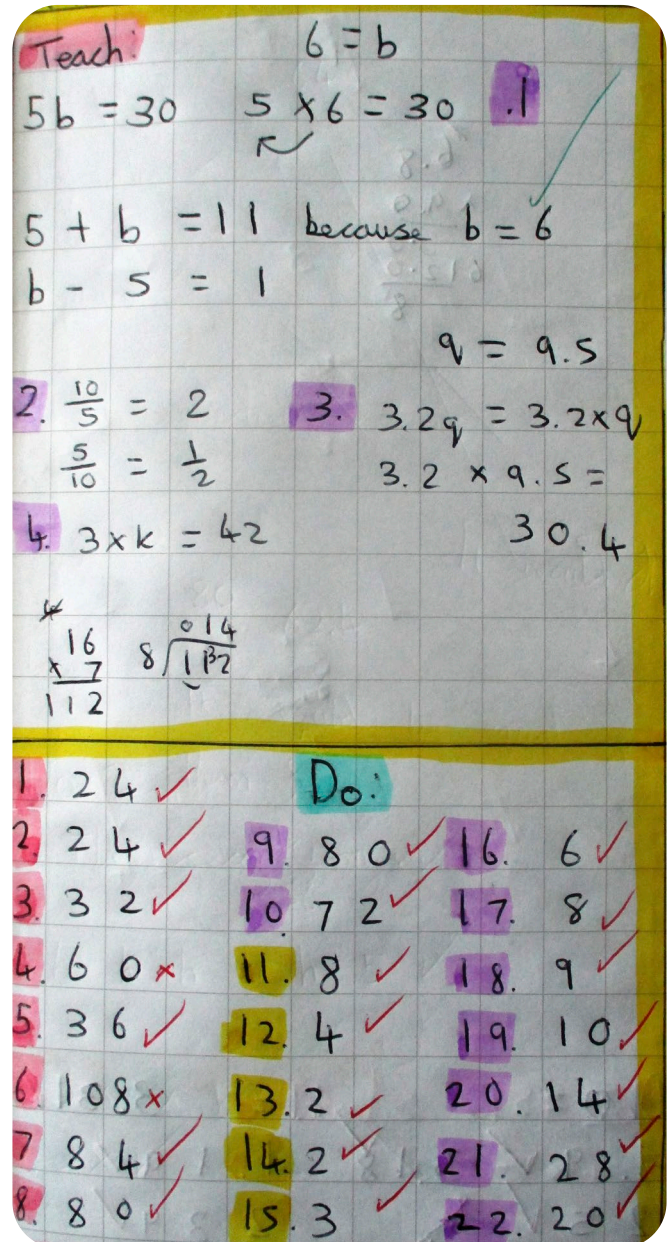 Teach: 6 = b
5b = 30 5 × 6 = 30 .1
5 + b = 11 because b = 6
b - 5 = 1
q = 9.5
2. 10/5 = 2
5/10 = 1/2
3. 3.2q = 3.2×q
3.2 × 9.5 =
30.4
4. 3×k = 42
16
× 7
112
014
8 1132
Do:
1. 24 ✓
2. 24 ✓
3. 32 ✓
4. 60 ×
5. 36 ✓
6. 108 ×
7 84 ✓
8. 80 ✓
9. 80 ✓
10. 72 ✓
11. 8 ✓
12. 4 ✓
13. 2 ✓
14. 2 ✓
15. 3 ✓
16. 6 ✓
17. 8 ✓
18. 9 ✓
19. 10 ✓
20. 14 ✓
21. 28 ✓
22. 20 ✓